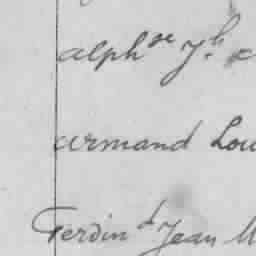 alphse Jh
armand Lou
Ferdind Jean M